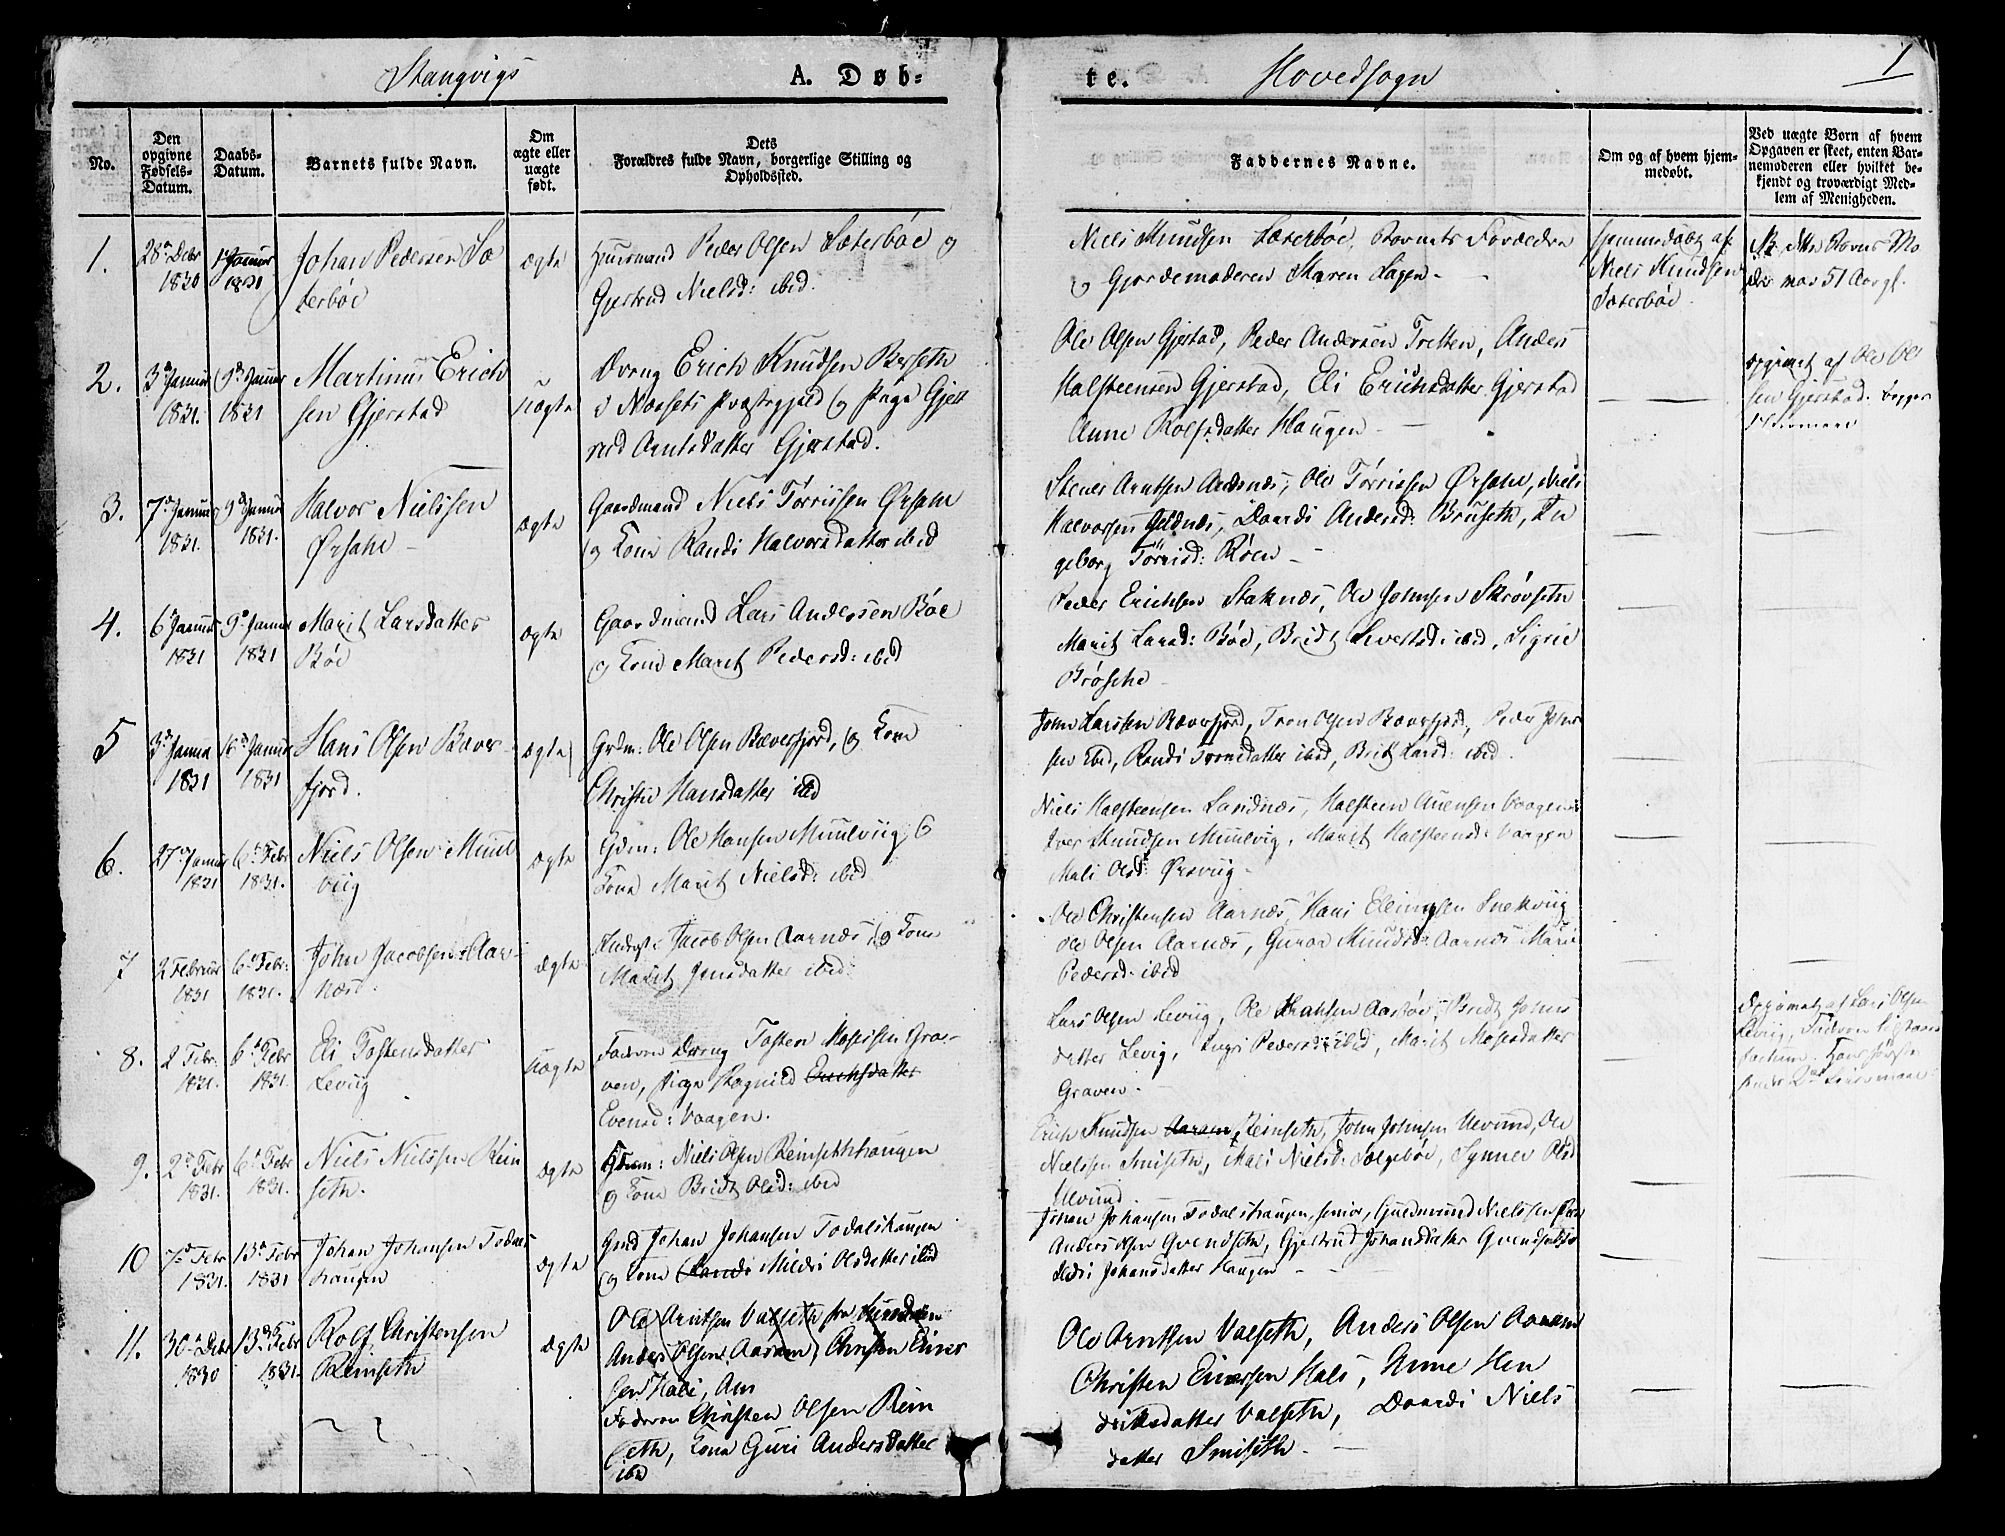 Stangvigs
A. Døb-
te.
Hovedsogn
1
No.
Den
opgivne
Fødsels-
Datum.
Daabs-
Datum.
Barnets fulde Navn.
Om
ægte eller
uægte
født.
Dets
Forældres fulde Navn, borgerlige Stilling og
Opholdssted.
Faddernes Navne.
Om og af hvem hjem-
medøbt.
Ved uægte Born af hvem
Opgaven er skeet, enten Bar-
nemoderen eller hvilket be-
kjendt og troværdigt Med-
lem af Menigheden.
1.
28de Debr
1830
1 Januar
1831
Johan Pedersen Sæ
terbøe
ægte
Huusmand Peder Olsen Sæterbøe og
Gjertrud Nielsd: ibid.
Niels Knudsen Sæterbøe, Barnets Forældre
og Gjordemoderen Maren
Hjemmedøbt af
Niels Knudsen
Sæterbøe
NB. Barnets Mo
der var 51 Aar gl.
2.
3die Januar
1831.
9de Januar
1831
Martinus Erich
sen Gjerstad
Uægte
Dreng Erich Knudsen Berseth
i Næssets Præstegjeld og Pige Gjert
rud Arntsdatter Gjerstad.
Ole Olsen Gjerstad, Peder Andersen Tretten, Anders
Halsteensen Gjerstad, Eli Erichsdatter Gjerstad
Anne Rolfsdatter Haugen
opgivet af Ole Ol
sen Gjerstad. begges
3.
7de Januar
1831.
9de Januar
1831.
Halvor Nielssen
Ørsahl
ægte
Gaardmand Niels Tørrissen Ørsahl
og Kone Randi Halvorsdatter ibid
Stener Arntsen Aarsnæs, Ole Tørrissen Ørsahl, Niels
Halvorsen Geldnæs, Daardi Andersd: Bruseth, In
geborg Tørrisd: Røen
4.
6te Januar
1831
9de Januar
1831
Marit Larsdatter
Bøe
ægte
Gaardmand Lars Andersen Bøe
og Kone Marit Pedersd: ibid
Peder Erichsen Staknæs, Ole Johnsen Skrøvseth
Marit Larsd: Bøe, Bridt Sivertsd: ibid, Sigrie
Brøske
5
3die Janua
1831
16de Januar
1831
Hans Olsen Bæver
fjord.
ægte
Grdm: Ole Olsen Bæverfjord, og Kone
Christie Hansdatter ibid
John Larsen Bæverfjord, Tron Olsen Bæverfjord, Peder Johns
sen ibid, Randi Tronsdatter ibid, Brit Larsd: ibid
6.
27de Januar
1831
6te Febr
1831.
Niels Olsen Muul
viig
ægte
Gdm: Ole Hansen Muulviig, &
Kone Marit Nielsd: ibid
Niels Halsteensen Landnæs, Halsteen Vaagen
Iver Knudsen Muulvig, Marit Halsteensd: Vaagen
Mali Olsd: Ørsviig
7
2 Februar
1831
6te Febr:
1831.
John Jacobsen Aar-
næs.
ægte
Jacob Olsen Aarnæs, og Kone
Marit Jonsdatter ibid
Ole Christensen Aarnæs, Hans Ellingsen Snekviig
Ole Olsen Aarnæs, Guroe Knudsd: Aarnæs, Marie
Pedersd: ibid
8.
2 Febr.
1831.
6te Febr
1831.
Eli Tostensdatter
Leviig
Uægte
Faderen Dreng Tosten Mosessen Gra-
ven, Pige Ragnild Erichsdatter
Evensd: Vaagen.
Lars Olsen Leviig, Ole Aasbøe, Bridt Johns
datter Levig, Ingri Pedersd: ibid, Marit Mosesdatter
Graven.
Opgivet af Lars Olsen
Leviig, Faderen
9.
2de Febr
1831.
6te Febr
1831.
Niels Nielssen Reim
seth.
ægte
Huusm: Niels Olsen Reimsethhaugen
og Kone Bridt Olsd: ibid
Erich Knudsen Aaram Reimseth, John Johnsen Ulvund, Ole
Nielssen Smiseth, Mali Nielsd: Sælgebøe, Synnev Olsd
Ulvund
10
7de Febr
1831.
13de Febr
1831
Johan Johansen Todals
haugen
ægte
Gmd Johan Johansen Todalshaugen
og Kone Randi Mildri Olsdatter ibid
Johan Johansen Todalshaugen, senior, Gudmund Nielssen
Anders Olsen Qvendseth, Gjertrud Johansdatter Qvendseth
Johansdatter Haugen
11.
30te Debr
1830
13de Febr
1831.
Rolf Christensen
Reimseth
ægte
Ole Arntsen Valseth fra Surendalen
Anders Olsen Aaram, Christen Einer
sen Hals, Ann
Faderen Christen Olsen Reim
seth, Kone Guri Andersdatter
ibid
Ole Arntsen Valseth, Anders Olsen Aaram
Christen Einersen Hals, Anne Hen
driksdatter Valseth, Daardi Niels
datter Smiseth.